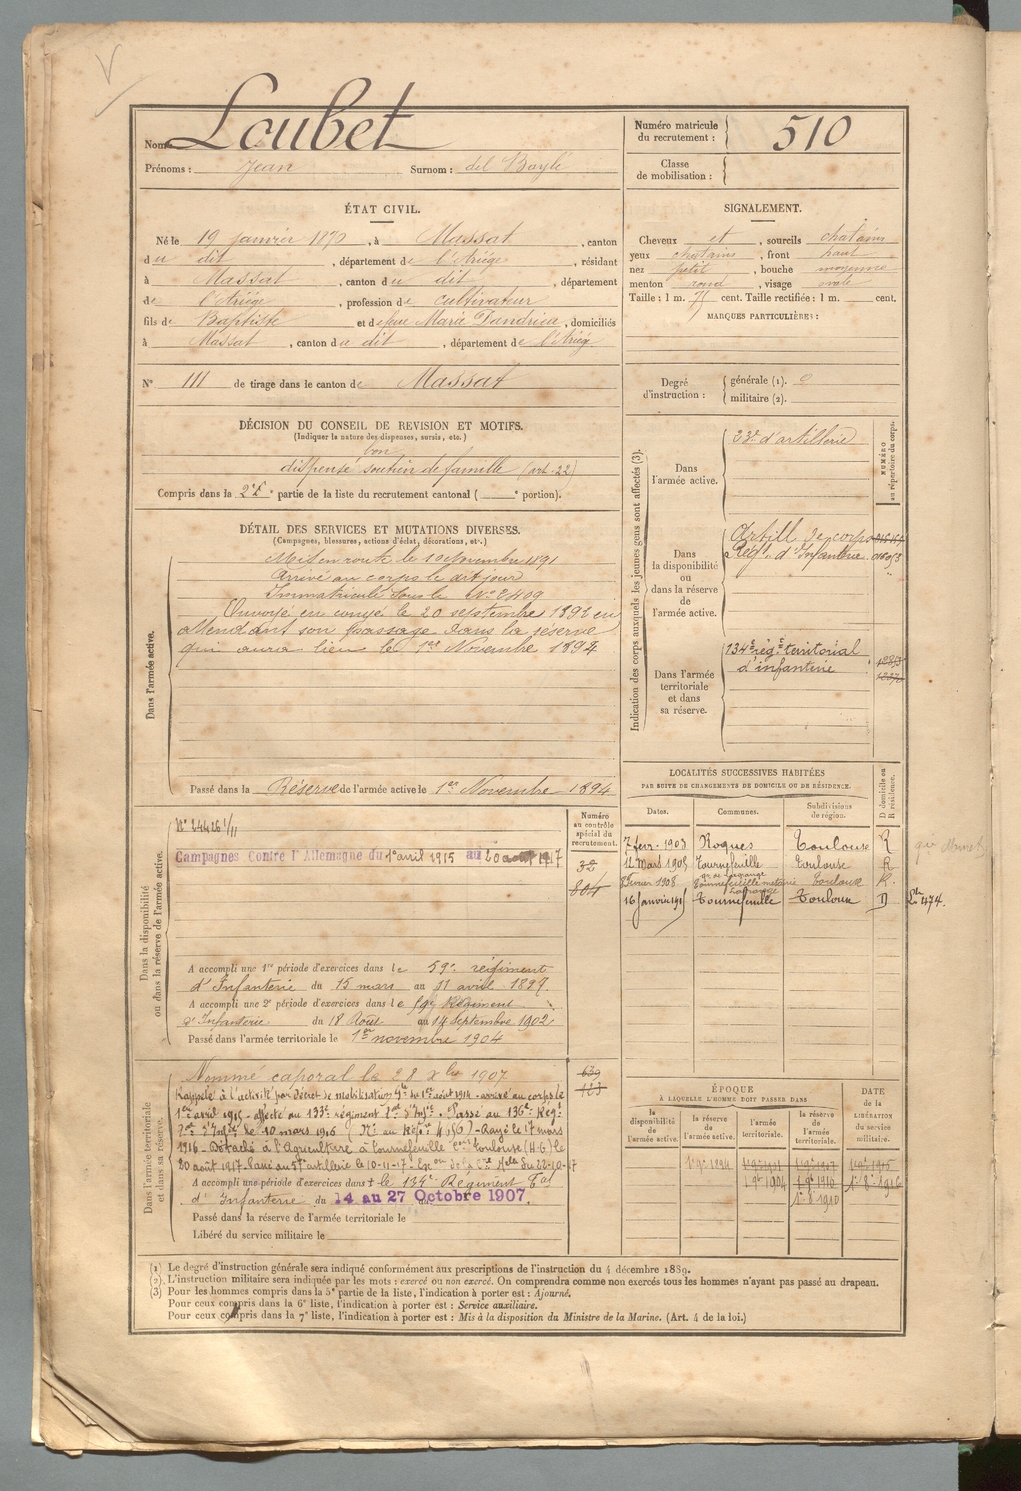 Nom Loubet
Prénoms : Jean Surnom : del Baylé
Numéro matricule du recrutement : 510
Classe de mobilisation :
ÉTAT CIVIL.
Né le 19 janvier 1870, à Massat, canton
du dit, département de l'Ariège, résidant
à Massat, canton du dit, département
de l'Ariège, profession de cultivateur
fils de Baptiste et de feue Marie Dandrieu, domiciliés
à Massat, canton du dit, département de l'Ariège
N° 111 de tirage dans le canton de Massat
SIGNALEMENT.
Cheveux et, sourcils chatains
yeux chatains, front haut
nez petit, bouche moyenne
menton rond, visage ovale
Taille : 1 m. 75 cent. Taille rectifiée : 1 m. cent.
MARQUES PARTICULIÈRES :
Degré d'instruction : générale (1).
militaire (2).
DÉCISION DU CONSEIL DE REVISION ET MOTIFS.
(Indiquer la nature des dispenses, sursis, etc.)
bon
dispensé soutien de famille (art. 22)
Compris dans la 2e partie de la liste du recrutement cantonal ( e portion).
DÉTAIL DES SERVICES ET MUTATIONS DIVERSES.
(Campagnes, blessures, actions d'éclat, décorations, etc.)
Dans l'armée active.
Mis en route le 10 novembre 1891
Arrivé au corps le dit jour
Immatriculé sous le N° 2409
Envoyé en congé le 20 septembre 1892 en
attendant son passage dans la réserve
qui aura lieu le 1er Novembre 1894
Passé dans la Réserve de l'armée active le 1er Novembre 1894
Indication des corps auxquels les jeunes gens sont affectés (3).
NUMÉRO au répertoire du corps.
Dans l'armée active.
23e d'artillerie
Dans la disponibilité ou dans la réserve de l'armée active.
Artill de corps
Régt d'Infanterie
Dans l'armée territoriale et dans sa réserve.
134e rég.t territorial
d'infanterie
LOCALITÉS SUCCESSIVES HABITÉES
PAR SUITE DE CHANGEMENTS DE DOMICILE OU DE RÉSIDENCE.
Dates. Communes. Subdivisions de région. D domicile ou R résidence.
7 fevr. 1903 Roques Toulouse R
12 Mars 1905 Tournefeuille Toulouse R
Février 1908 Tournefeuille métairie Lagrange Toulouse R.
16 Janvier Tournefeuille Toulouse D
474.
Dans la disponibilité ou dans la réserve de l'armée active.
Numéro au contrôle spécial du recrutement.
32
804
Campagnes Contre l'Allemagne du 1er avril 1915 au 20 août 1917
A accompli une 1re période d'exercices dans le 59e régiment
d'Infanterie du 15 mars au 11 avril 1897.
A accompli une 2e période d'exercices dans le 59e Régiment
d'Infanterie du 18 Août au 14 Septembre 1902
Passé dans l'armée territoriale le 1er novembre 1904
Dans l'armée territoriale et dans sa réserve.
639
123
Nommé caporal le 28 Xbre 1907
Rappelé à l'activité par décret de mobilisation Gle du 1er août 1914 - arrivé au corps le
1er avril 1915 - affecté au 133e régiment Tal d'Infie - Passé au 136e Régt
Tal d'Infie le 10 mars 1916 - Rayé le 17 mars
1916 - Détaché à l'Agriculture à Tournefeuille Con Toulouse (H-G) le
20 août 1917 - Passé au 57e artillerie le 10-11-17
A accompli une période d'exercices dans le 134e Régiment Tal
d'Infanterie du 14 au 27 Octobre 1907.
Passé dans la réserve de l'armée territoriale le
Libéré du service militaire le
ÉPOQUE
À LAQUELLE L'HOMME DOIT PASSER DANS
la disponibilité de l'armée active. la réserve de l'armée active. l'armée territoriale. la réserve de l'armée territoriale.
DATE de la LIBÉRATION du service militaire.
(1) Le degré d'instruction générale sera indiqué conformément aux prescriptions de l'instruction du 4 décembre 1889.
(2) L'instruction militaire sera indiquée par les mots : exercé ou non exercé. On comprendra comme non exercés tous les hommes n'ayant pas passé au drapeau.
(3) Pour les hommes compris dans la 5e partie de la liste, l'indication à porter est : Ajourné.
Pour ceux compris dans la 6e liste, l'indication à porter est : Service auxiliaire.
Pour ceux compris dans la 7e liste, l'indication à porter est : Mis à la disposition du Ministre de la Marine. (Art. 4 de la loi.)